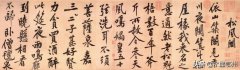 松風閣
依山築閣見平
川夜闌箕斗插
屋椽我來名之
意適然老松魁
梧數百年斧斤
所赦今參天
風鳴媧皇五十
弦洗耳不須
菩薩泉嘉二
三子甚好賢
力貧買酒醉此
筵夜雨鳴廊
到曉懸相看
不歸臥僧氈